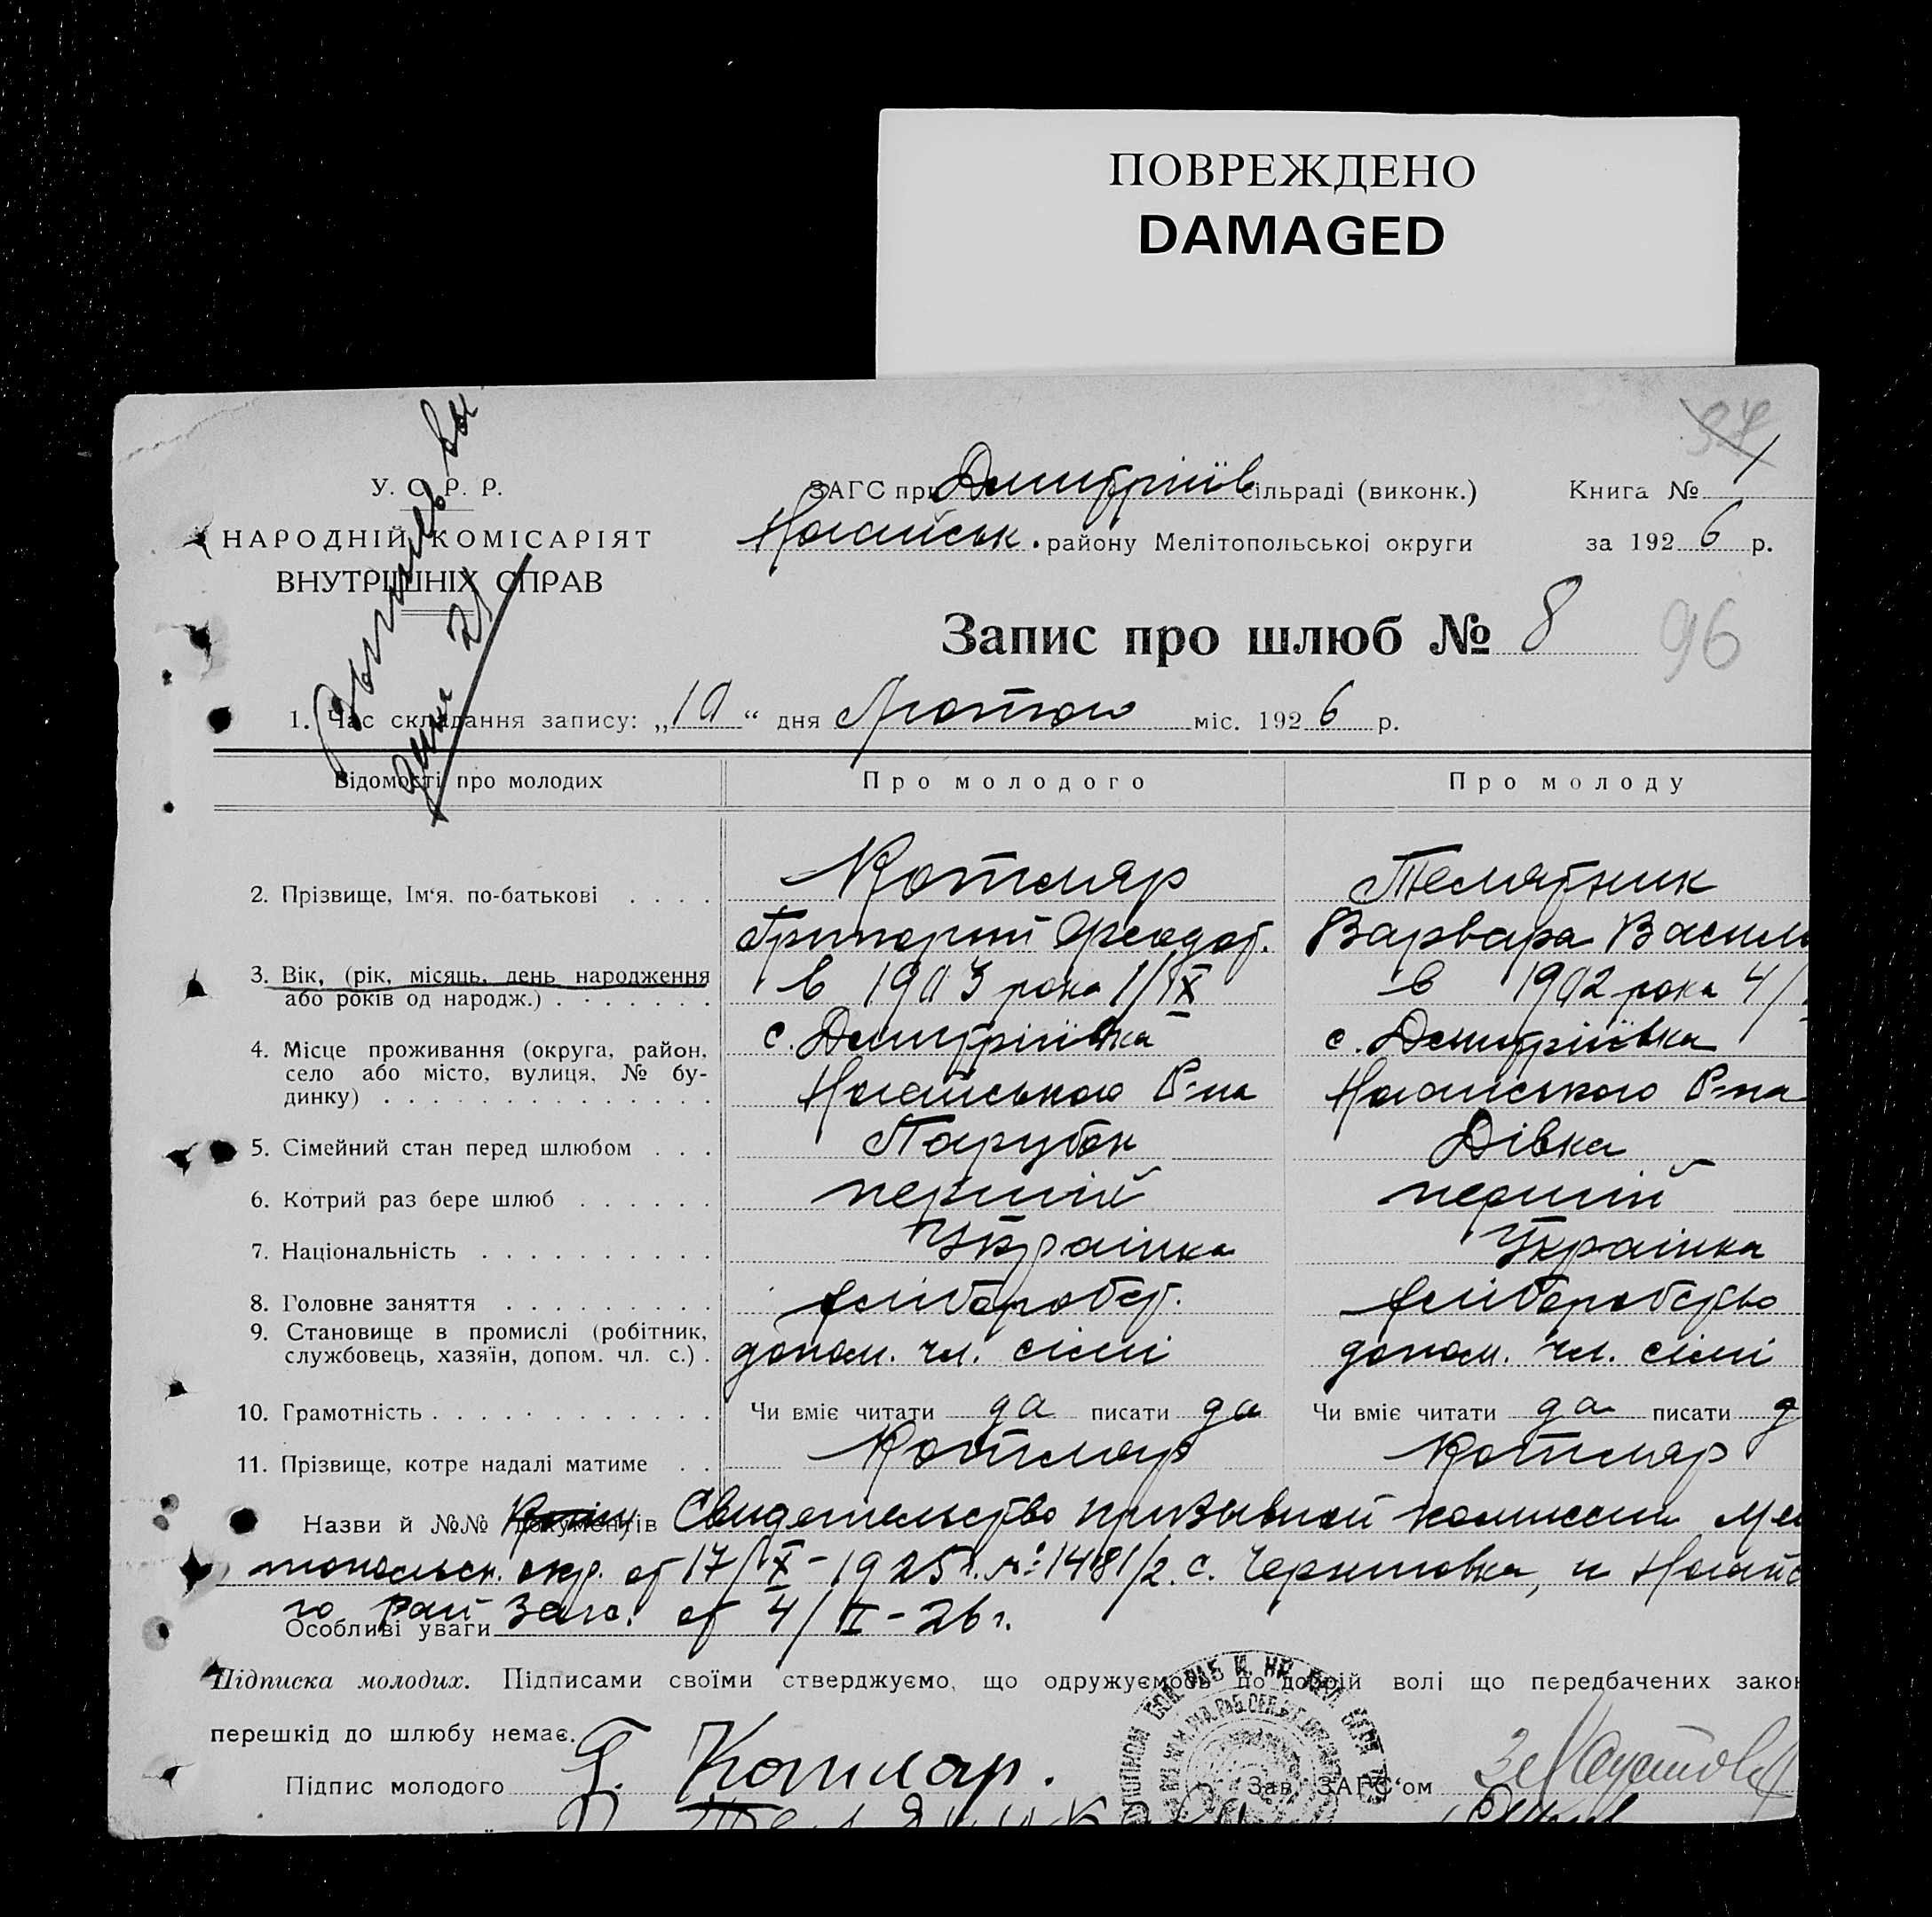 ПОВРЕЖДЕНО
DAMAGED
37
У. С. Р. Р.
НАРОДНІЙ КОМІСАРІЯТ
ВНУТРІШНІХ СПРАВ
ЗАГС при Дмитріїв сільраді (виконк.)
Книга № 1
Ногайськ. району Мелітопольської округи
за 1926 р.
Запис про шлюб № 8
96
1. Час складання запису: „10“ дня Лютого міс. 1926 р.
Відомості про молодих
Про молодого
Про молоду
2. Прізвище, Ім‘я, по-батькові . . . .
Котляр
Григорий Феодот.
Телятник
Варвара Васил
3. Вік, (рік, місяць, день народження
або років од народж.) . . . . . . .
в 1903 рока 1/IX
в 1902 рока 4/
4. Місце проживання (округа, район,
село або місто, вулиця, № бу-
динку) . . . . . . . . . . . . . .
с. Дмитріївка
Ногайського Р-на
с. Дмитріївка
Ногайского Р-на
5. Сімейний стан перед шлюбом . . .
Парубок
Дівка
6. Котрий раз бере шлюб . . . . . .
першій
першій
7. Національність . . . . . . . . . .
Українка
Українка
8. Головне заняття . . . . . . . . .
хліборобст.
хліборобство
9. Становище в промислі (робітник,
службовець, хазяїн, допом. чл. с.) .
допом. чл. сімі
допом. чл. сімі
10. Грамотність . . . . . . . . . . . .
Чи вміє читати да писати да
Чи вміє читати да писати д
11. Прізвище, котре надалі матиме . .
Котляр
Котляр
Назви й №№ документів Свидетельство призывной комиссии Мели
топольск. окр. от 17/X-1925 г. №: 1481/2. с. Черниговка, и Ногайс
го рай Загс. от 4/II-26 г.
Особливі уваги
Підписка молодих. Підписами своїми стверджуємо, що одружуємось по добрій волі що передбачених закон
перешкід до шлюбу немає.
Підпис молодого Г. Котляр.
Зав. ЗАГС‘ом